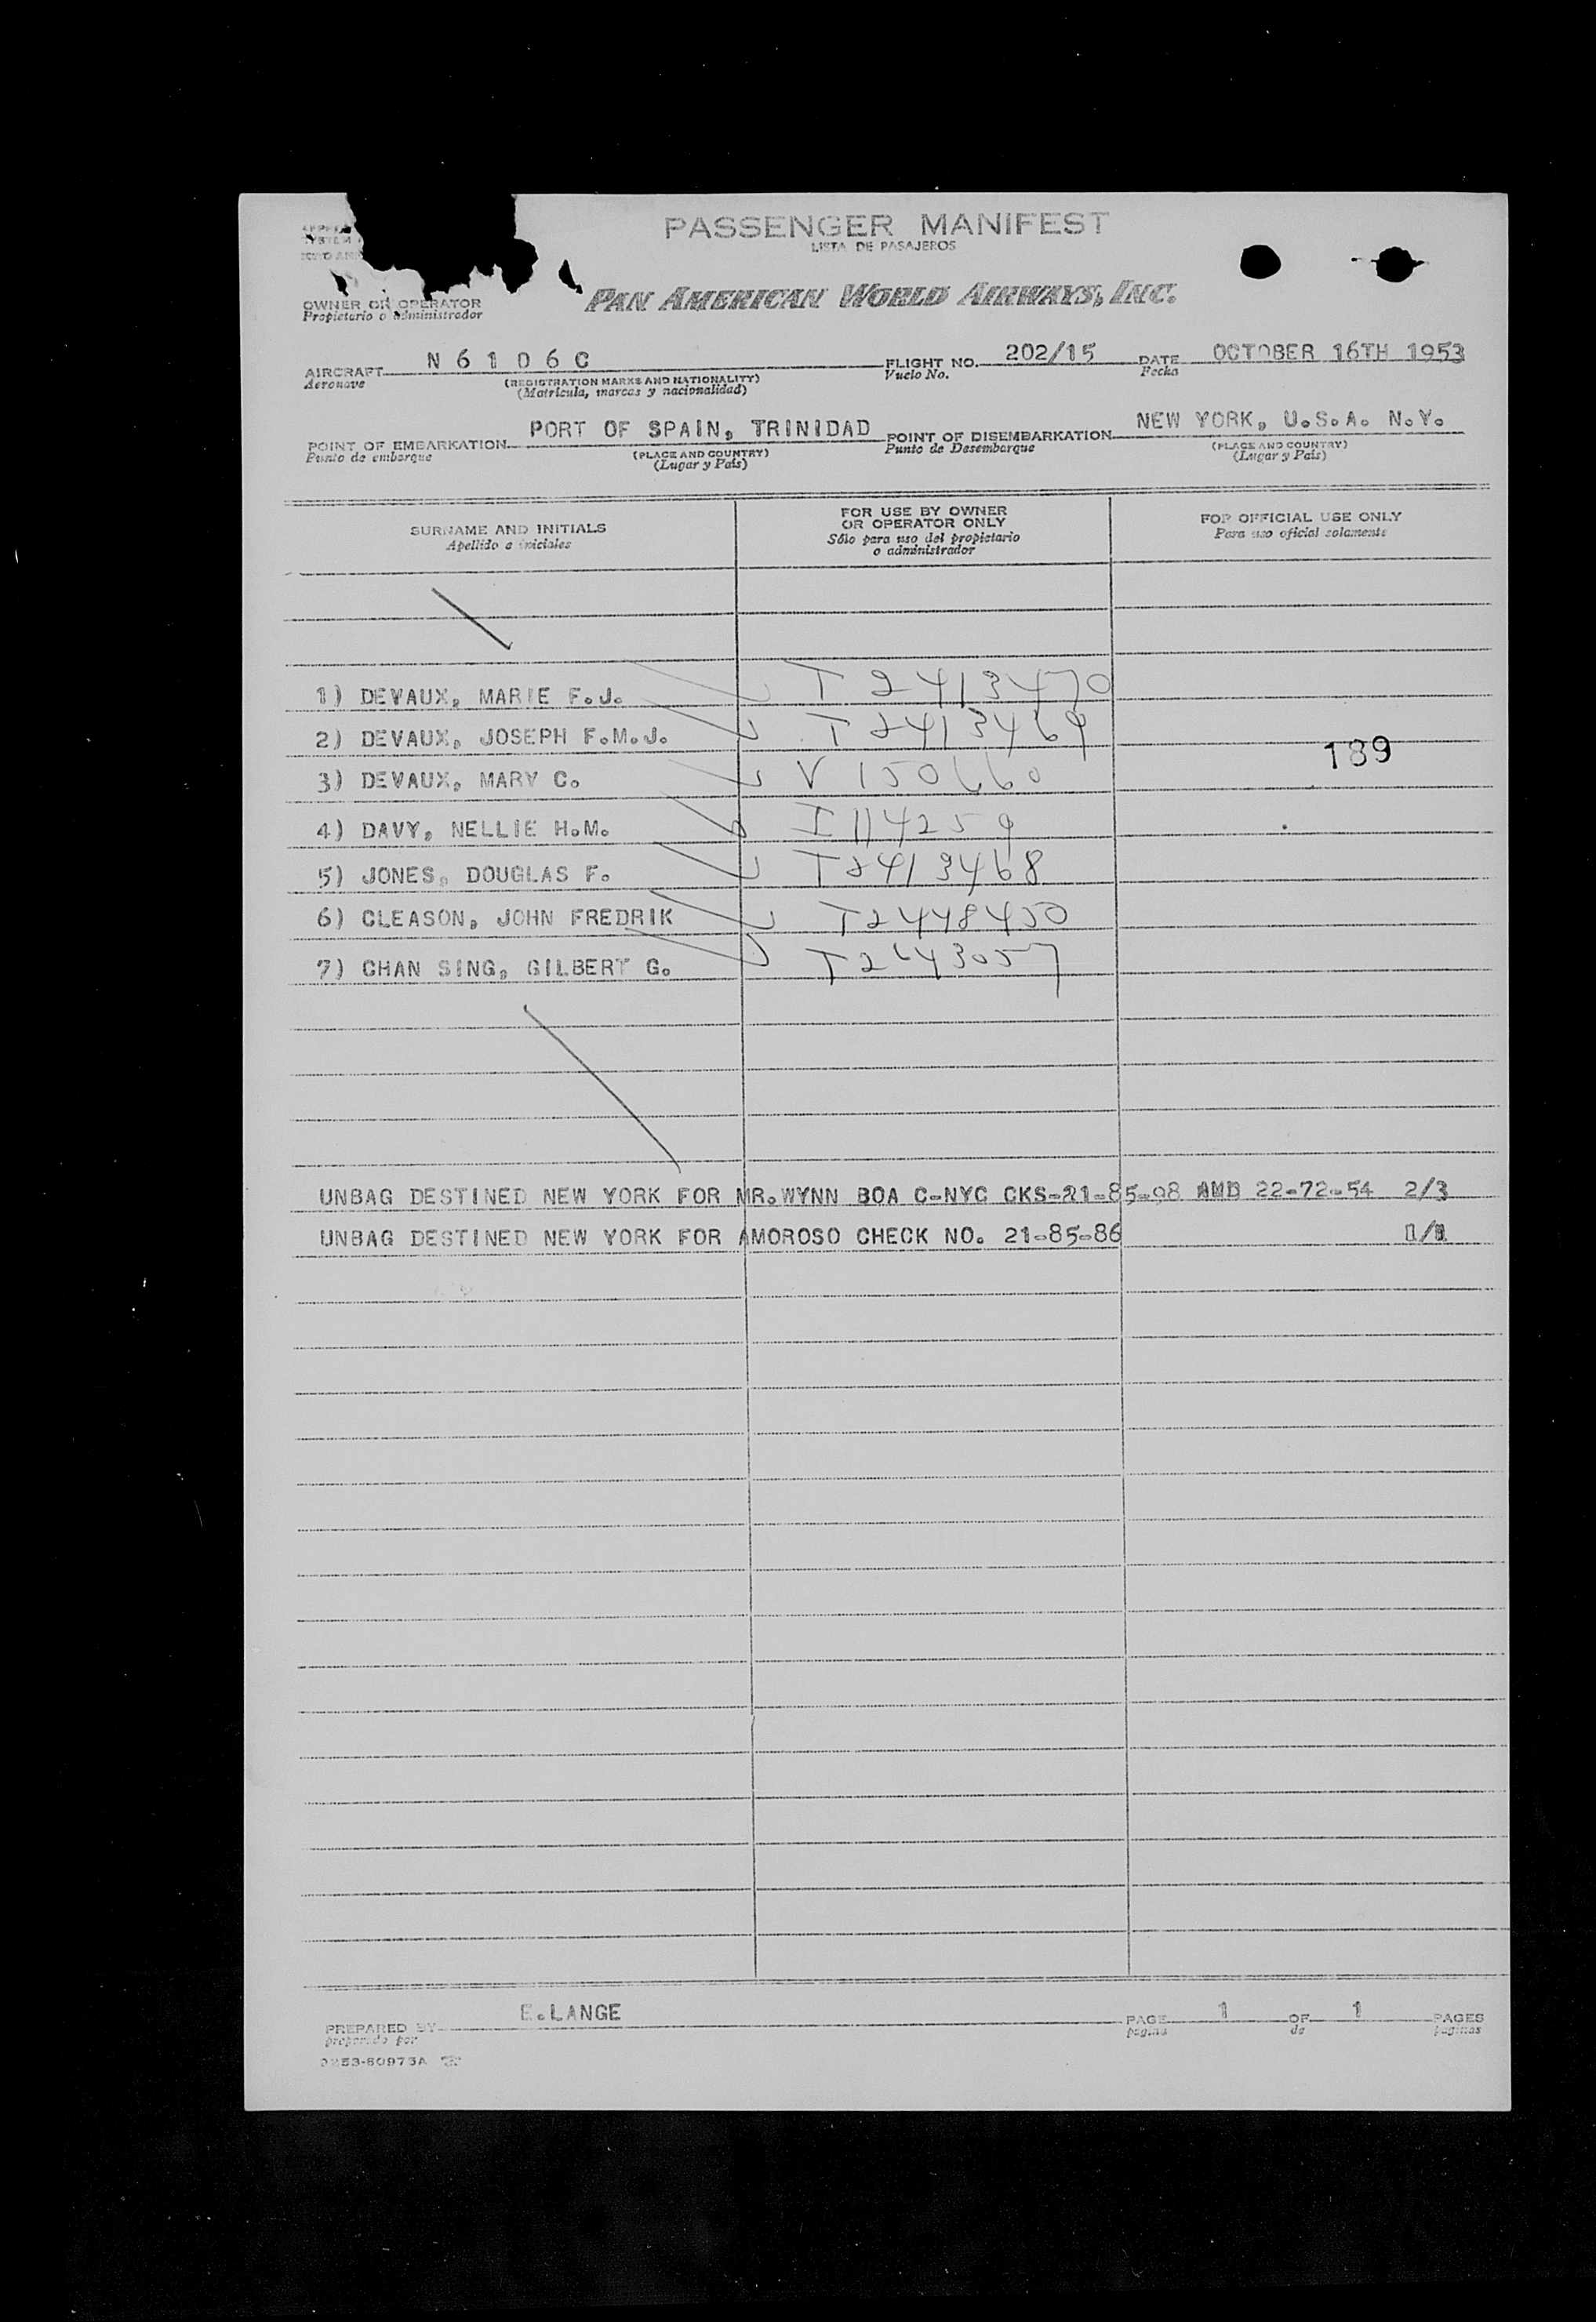 PASSENGER MANIFEST
LISTA DE PASAJEROS
OWNER OR OPERATOR
Propietario o administrador
PAN AMERICAN WORLD AIRWAYS, INC.
AIRCRAFT N 6 1 0 6 C FLIGHT NO. 202/15 DATE OCTOBER 16TH 1953
Aeronave (REGISTRATION MARKS AND NATIONALITY) Vuelo No. Fecha
(Matrícula, marcas y nacionalidad)
POINT OF EMBARKATION PORT OF SPAIN, TRINIDAD POINT OF DISEMBARKATION NEW YORK, U.S.A. N.Y.
Punto de embarque (PLACE AND COUNTRY) Punto de Desembarque (PLACE AND COUNTRY)
(Lugar y País) (Lugar y País)
SURNAME AND INITIALS
Apellido e iniciales
FOR USE BY OWNER
OR OPERATOR ONLY
Sólo para uso del propietario
o administrador
FOR OFFICIAL USE ONLY
Para uso oficial solamente
1) DEVAUX, MARIE F.J. T 2413470
2) DEVAUX, JOSEPH F.M.J. T 2413469
189
3) DEVAUX, MARY C. V 150660
4) DAVY, NELLIE H.M. I 114259
5) JONES, DOUGLAS F. T2413468
6) CLEASON, JOHN FREDRIK T2448450
7) CHAN SING, GILBERT G. T2643057
UNBAG DESTINED NEW YORK FOR MR.WYNN BOA C-NYC CKS-21-85-98 AND 22-72-54 2/3
UNBAG DESTINED NEW YORK FOR AMOROSO CHECK NO. 21-85-86 1/1
PREPARED BY E.LANGE PAGE 1 OF 1 PAGES
preparado por pagina de paginas